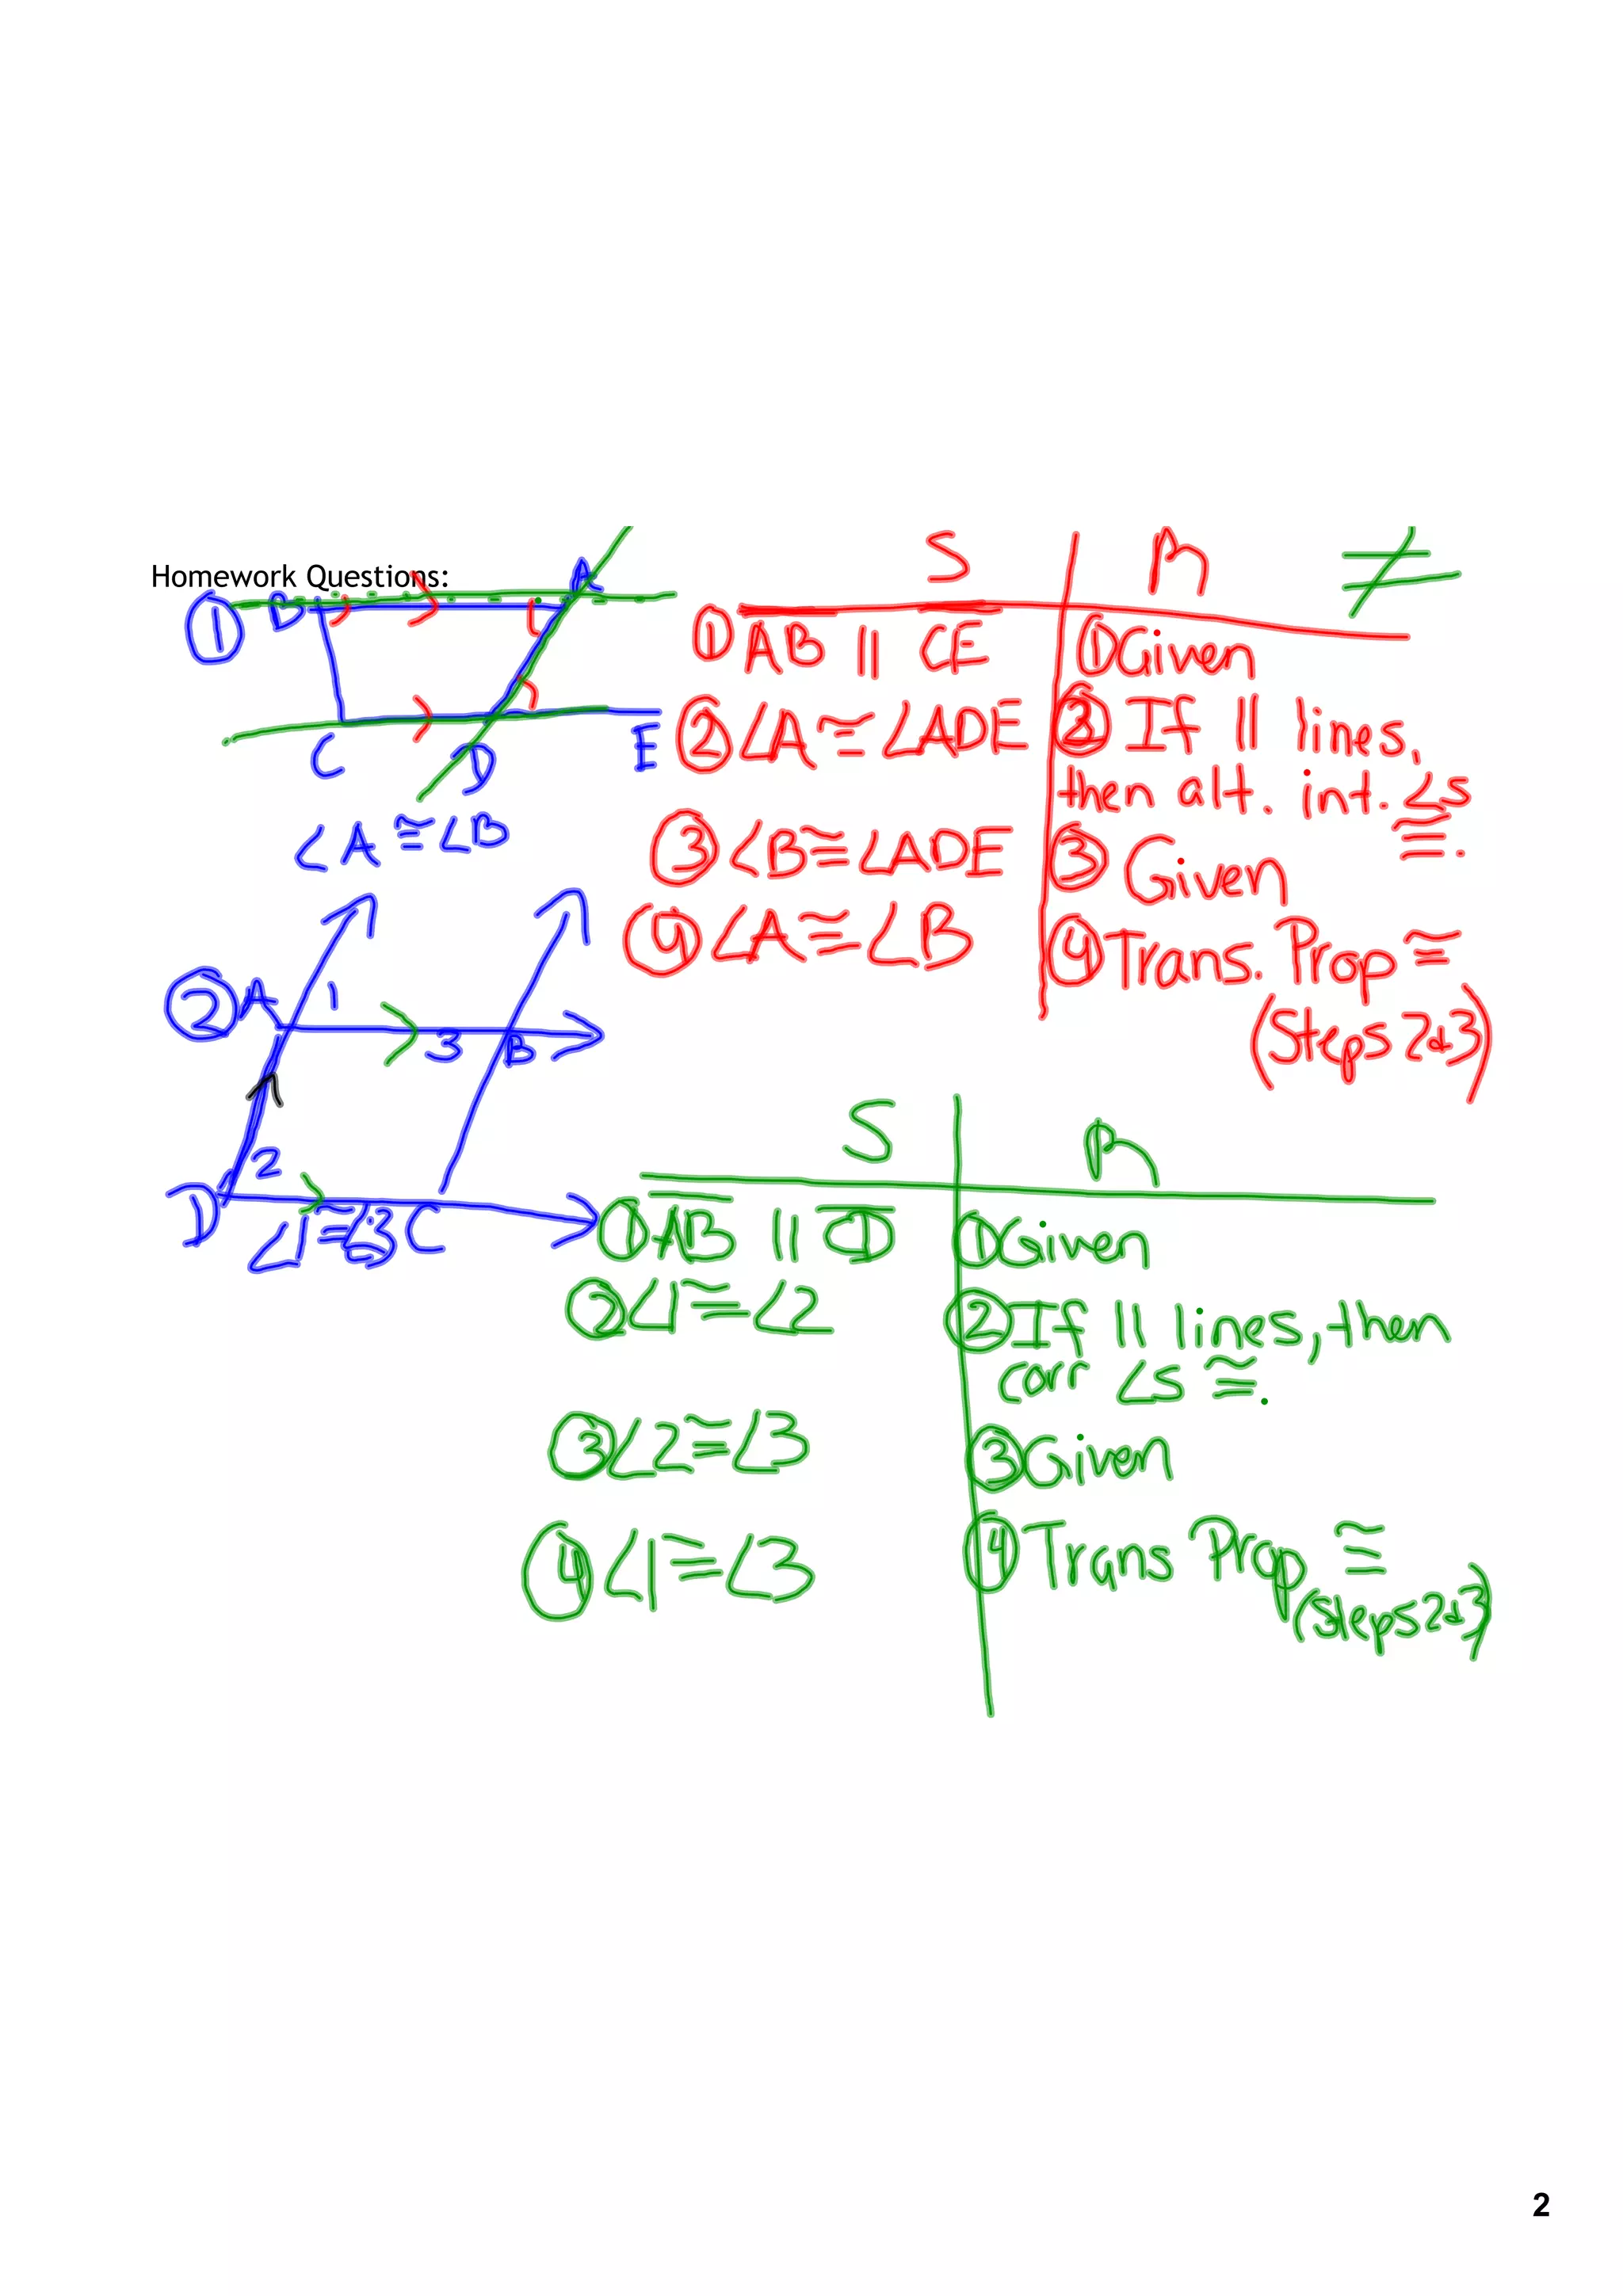 Homework Questions:
S R
① B A
C D E
∠A ≅ ∠B
① AB || CE ① Given
② ∠A ≅ ∠ADE ② If || lines,
then alt. int. ∠s
≅.
③ ∠B ≅ ∠ADE ③ Given
④ ∠A ≅ ∠B ④ Trans. Prop ≅
(Steps 2&3)
② A 1
3 B
2
D C
∠1 ≅ ∠3
S R
① AB || CD ① Given
② ∠1 ≅ ∠2 ② If || lines, then
corr ∠s ≅.
③ ∠2 ≅ ∠3 ③ Given
④ ∠1 ≅ ∠3 ④ Trans Prop ≅
(Steps 2&3)
2